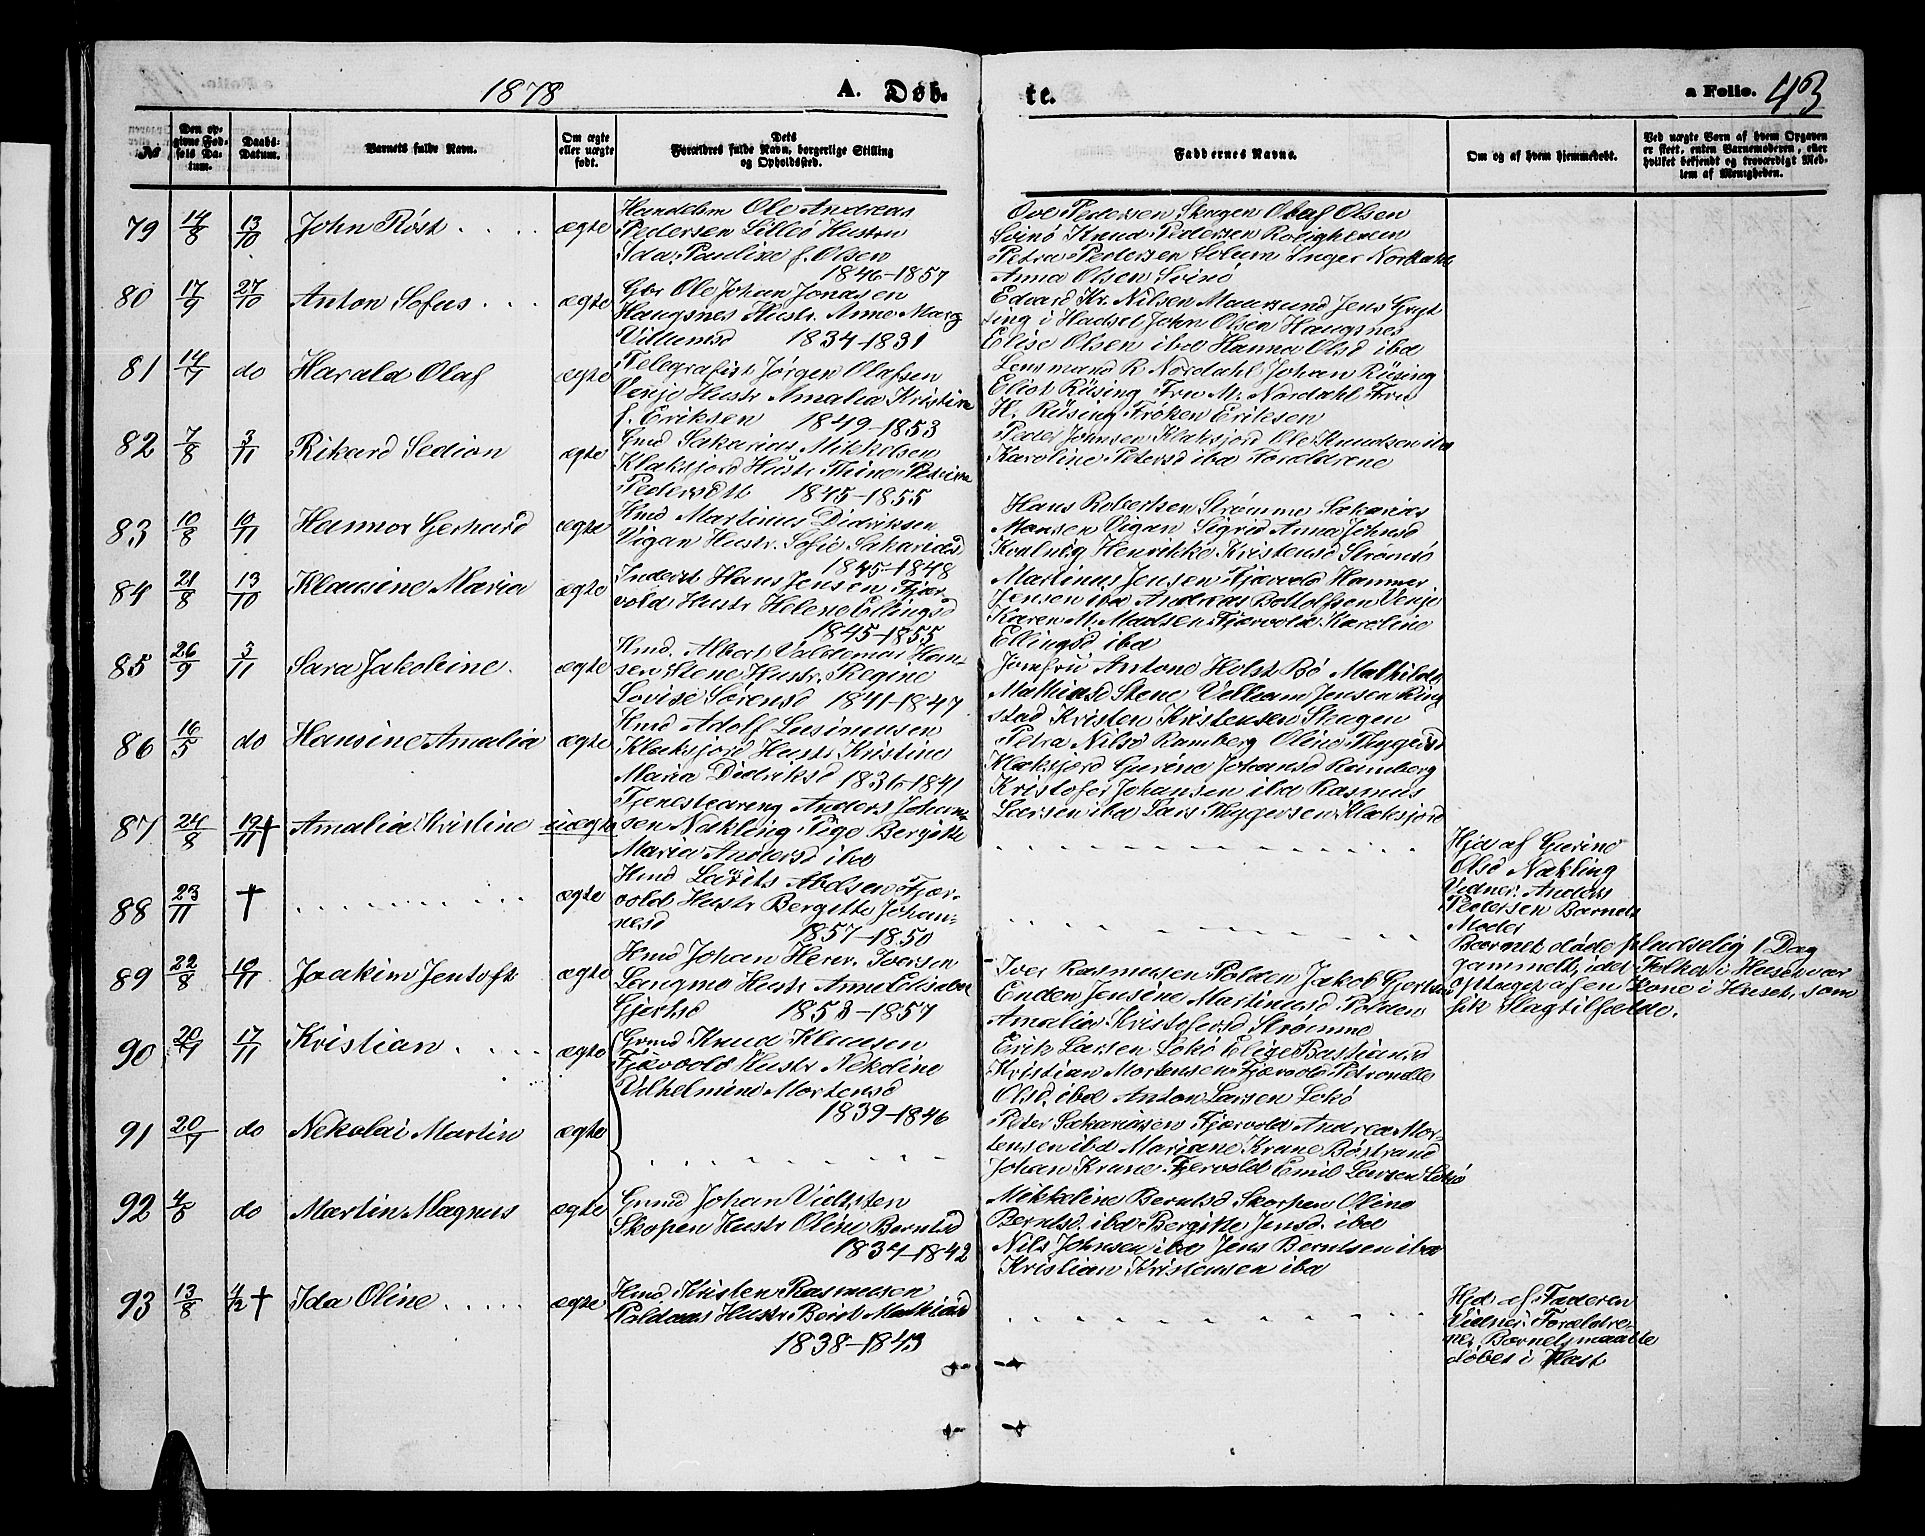 1878
A. Døb-
te.
a Folio. 43
№
Den op-
givne Fød-
sels Da-
tum.
Daabs-
Datum.
Barnets fulde Navn.
Om ægte
eller uægte
født.
Dets
Forældres fulde Navn, borgerlige Stilling
og Opholdssted.
Faddernes Navne.
Om og af hvem hjemmedøbt.
Ved uægte Børn af hvem Opgaven
er skeet, enten Barnemoderen, eller
hvilket bekjendt og troværdigt Med-
lem af Menigheden.
79 14/8 13/10 John Röst ægte
Handelsm Ole Andreas
Pedersen Lillö Hustru
Ida Pauline f. Olsen
1846-1857
Ove Pedersen Skagen Olaf Olsen
Svinö Knud Pedersen Rolighenen
Petra Pedersen Solum Inger Nordahl
Anna Olsen Svinö
80 17/9 27/10 Anton Sofus ægte
Gbr Ole Johan Jonasen
Haugsnes Hustr. Anne Marg
Villumsd 1834-1831
Edvard Kr. Nilsen Maursund Jens Gryt
ting i Hadsel John Olsen Haugsnes
Elise Olsen ibd Hanna Olsd ibd
81 14/7 do Harald Olaf ægte
Telegrafist Jörgen Olafsen
Venje Hustr Amalia Kristine
f. Eriksen 1849-1853
Lensmand R. Nordahl Johan Rüsing
Eliot Rüsing Fru M. Nordahl Fru
H. Rüsing Fröken Eriksen
82 7/8 3/11 Rikard Sedion ægte
Gmd Sakarias Mikkelsen
Klaksjord Hustr Thine Petrine
Pedersdtt 1845-1855
Peder Johnsen Klaksjord Ole Knudsen ibd
Karoline Petersd ibd Forældrene
83 10/8 10/11 Hannor Gerhard ægte
Hmd Martinus Didriksen
Vigan Hustr. Sofie Sakariasd
1845-1848
Hans Robertsen Strömme Sakarias
Monsen Vigan Sigrid Anna Johnsd
Kolvig Henrikke Kristensd Strömsö
84 21/8 13/10 Klausine Maria ægte
Inderst Hans Jensen Fjær-
vold Hustr Helene Ellingsd
1845-1855
Martinus Jensen Fjærvold Hammer
Jensen ibd Andreas Bottolfsen Venje
Karen M. Madsen Fjærvold Karoline
Ellingsd ibd
85 26/9 3/11 Sara Jakobine ægte
Hmd. Albert Valdemar Han-
sen Stene Hustr. Regine
Lovise Sörensd 1841-1847
Jomfru Antone Holst Bö Mathilde
Mathiasd Stene Villiam Jensen Ring
stad Kristen Kristensen Skagen
86 16/5 do Hansine Amalia ægte
Hmd Adolf Lusimusen
Klaksjord Hustr Kristine
Maria Didriksd 1836-1841
Petra Nilsd Ramberg Oline Thygersd
Klaksjord Gurine Johansd Ramberg
Kristofer Johansen ibd Rasmus
Larsen ibd Lars Thygersen Klaksjord
87 24/8 12/11 † Amalia Kristine uægte
Tjenestedreng Anders Johan-
sen Nækling Pige Bergitte
Maria Andersd ibd
Hjd af Gurine
Olsd Nækling
Vidner. Anders
Pedersen Barnets
Moder
88 23/11 † ægte
Hmd Laurits Abelsen Fjær-
vold Hustr Bergitte Johan-
nesd 1857-1850
Barnet döde pludselig 1 Dag
gammelt, idet Folket i Huset var
optaget af en Kone i Huset, som
fik Slagtilfælde.
89 22/8 10/11 Joakim Jentoft ægte
Hmd Johan Henr. Iversen
Langmo Hustr Anne Elisabet
Gjertsd 1853-1857
Iver Rasmussen Polden Jakob Gjertsen
Enden Jensine Martinusd Polden
Amalia Kristofersd Strömme
90 20/7 17/11 Kristian ægte
Grmd Knud Klausen
Fjærvold Hustr Nekoline
Vilhelmine Mortensd
1839-1846
Erik Larsen Sokö Elise Bastiansd
Kristian Mortensen Fjærvold Petronelle
Olsd. ibd Anton Larsen Sokö
91 20/7 do Nekolai Martin ægte
Peter Sakariasen Fjærvold Andrea Mor-
tensen ibd Mariane Krane Böstrand
Johan Krane Fjærvold Emil Larsen Sokö
92 4/8 do Martin Magnus ægte
Grmd Johan Vidsten
Skopen Hustr Oline Berntsd
1834-1842
Mikkeline Berntsd Skorpen Oline
Berntsd. ibd Bergitte Jensd. ibd
Nils Johnsen ibd Jens Berntsen ibd
Kristian Kristensen ibd
93 13/8 4/2 † Ida Oline ægte
Hmd Kristen Rasmusen
Poldaas Hustr Berit Mathiasd
1838-1843
Hjd af Faderen
Vidner. Forældre-
ne, Barnet maatte
döbes i Hast